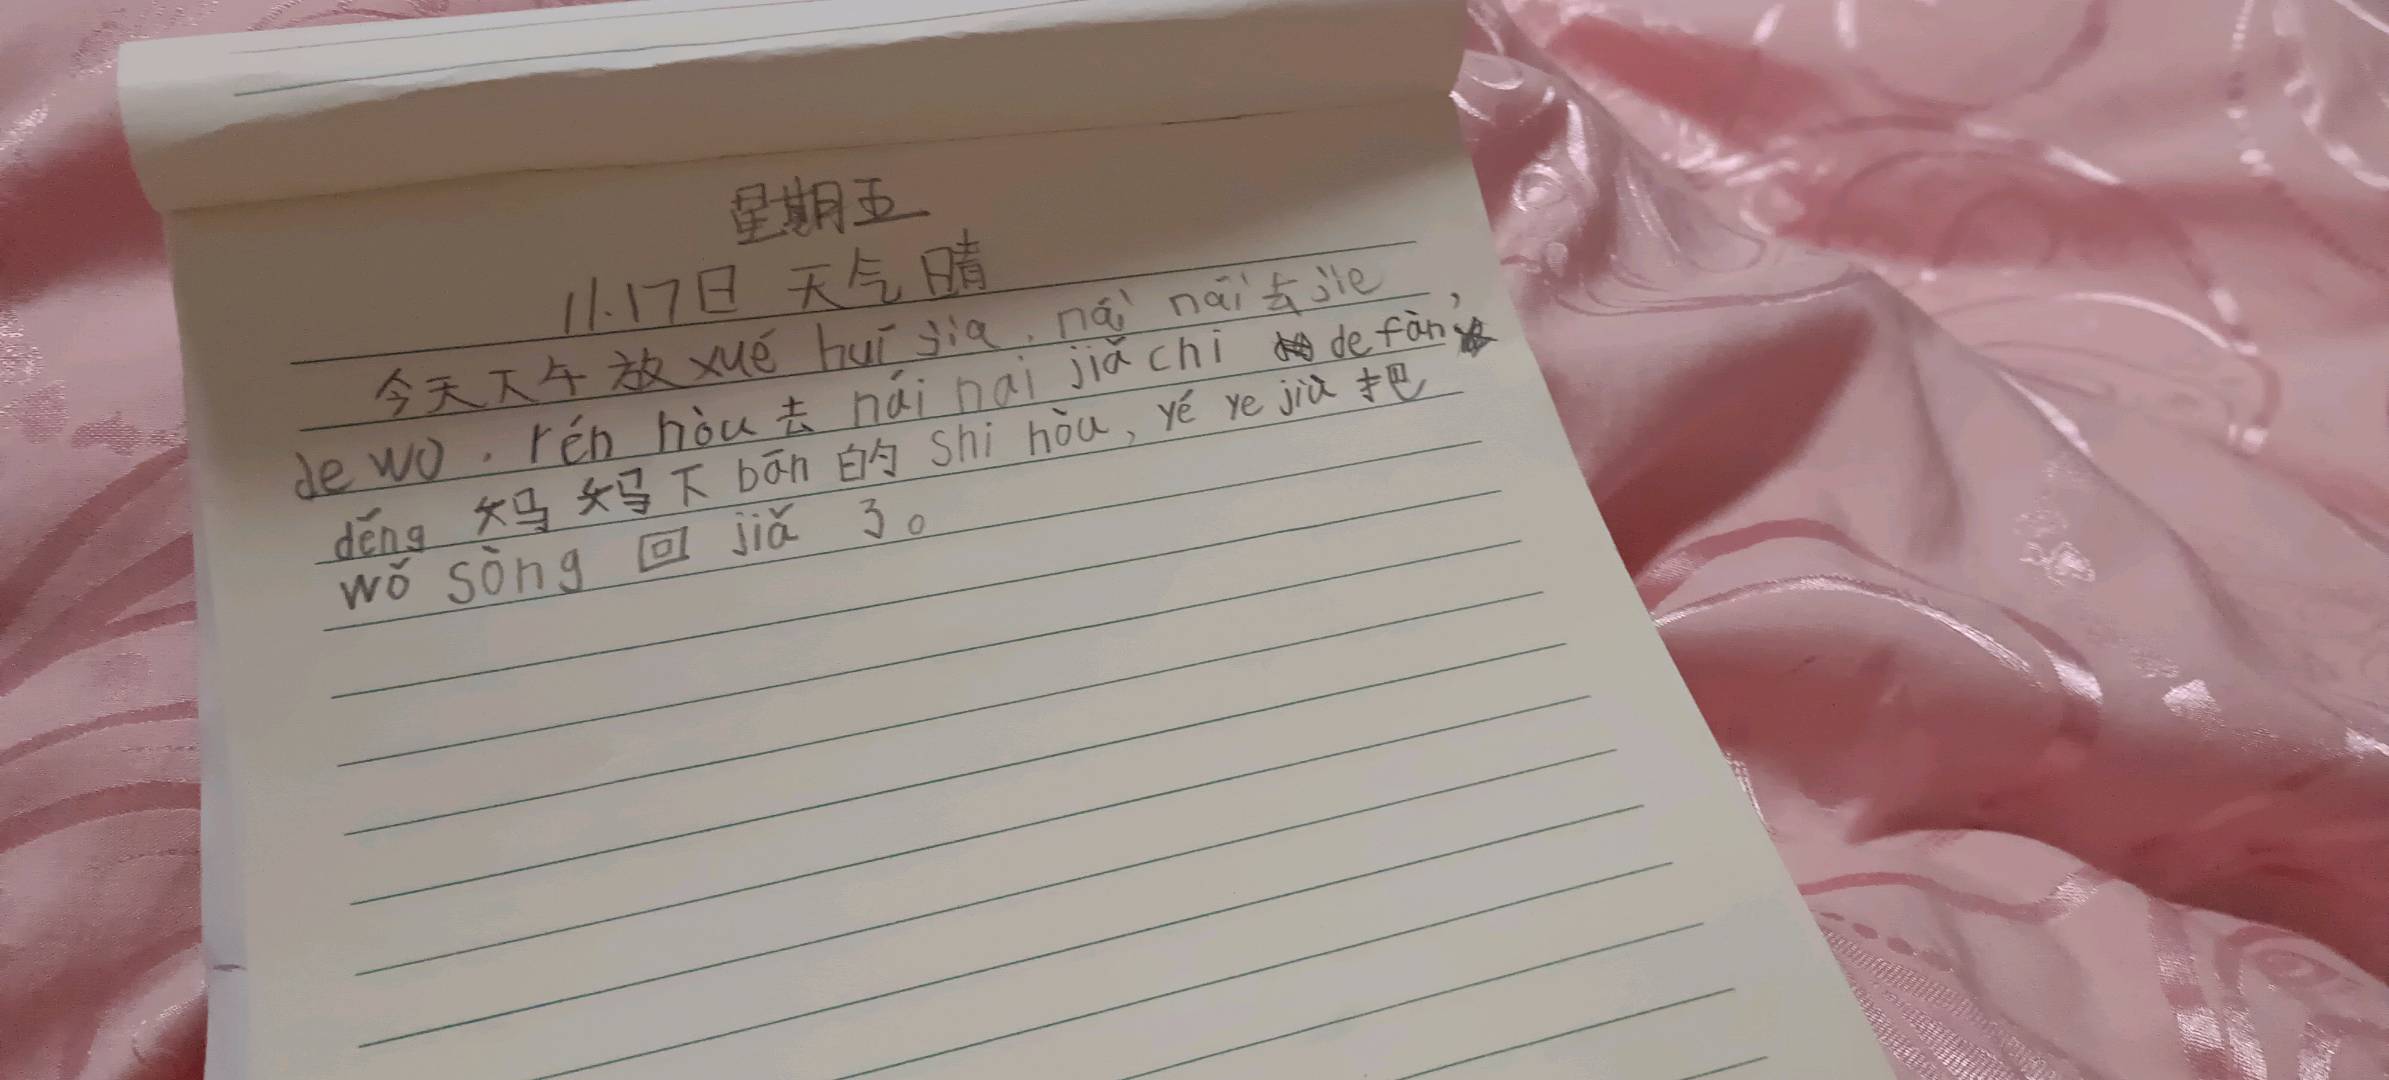 星期五
11.17日 天气晴
今天下午放xué huí jia，nái nǎi去jie
de wo．rén hòu去nái nai jiǎ chi de fàn，
děng 妈妈下bān的shi hòu，yé ye jiù 把
wǒ sòng 回 jiǎ 了。